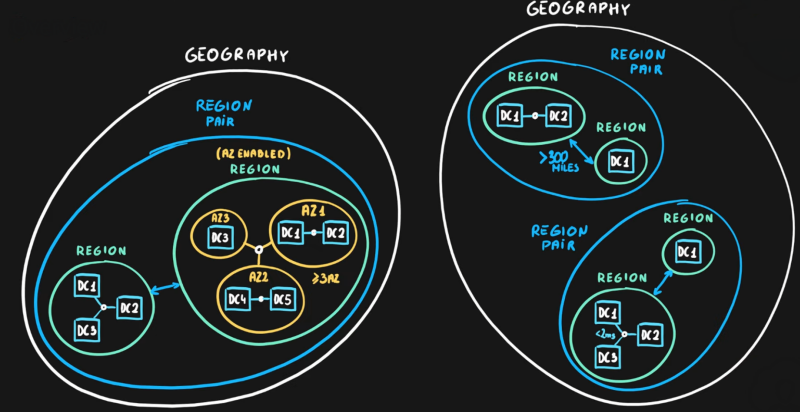 GEOGRAPHY
REGION
PAIR
(AZ ENABLED)
REGION
AZ3
DC3
AZ1
DC1
DC2
AZ2
DC4
DC5
≥3AZ
REGION
DC1
DC2
DC3
GEOGRAPHY
REGION
PAIR
REGION
DC1
DC2
>300
MILES
REGION
DC1
REGION
PAIR
REGION
DC1
REGION
DC1
<2ms
DC2
DC3